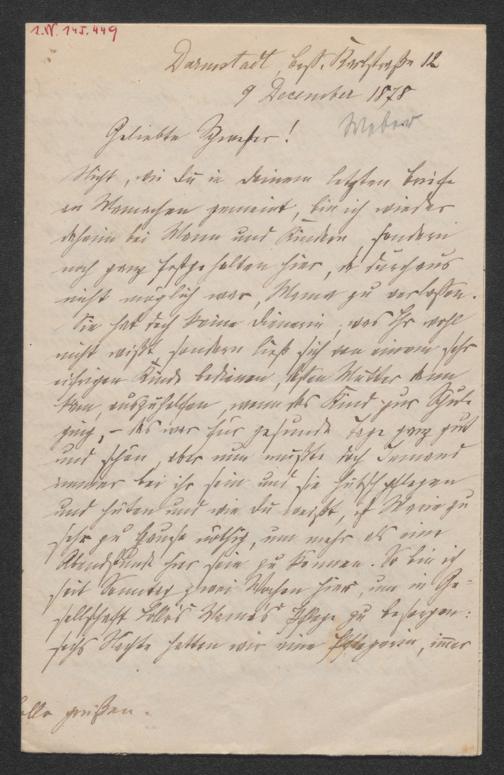 I.N. 145.449
Darmstadt, bess. Karlstraße 12
9 December 1878
Weber
Geliebte Schwester!
Nicht, wie Du in Deinem letzten Briefe
an Mamachen gemeint, bin ich wieder
daheim bei Mann und Kindern, sondern
noch ganz festgehalten hier, da durchaus
nicht möglich war, Mama zu verlassen.
Sie hat doch keine Dienerin, was Ihr wohl
nicht wißt, sondern ließ sich von einem sehr
Kinde bedienen, dessen Mutter dann
kam, auszuhelfen, wenn das Kind zur Schule
ging, – das war für gesunde Tage ganz gut
und schön, aber nun mußte doch Jemand
immer bei ihr sein und sie hübsch pflegen
und hüten und wie Du weißt, ist Marie zu
sehr zu Hause nöthig, um mehr als eine
Abendstunde hier sein zu können. So bin ich
seit Sonntag zwei Wochen hier, um in Ge-
sellschaft Mamas Pflege zu besorgen:
sechs Nächte hatten wir eine Pflegerin, immer
alle grüßen.